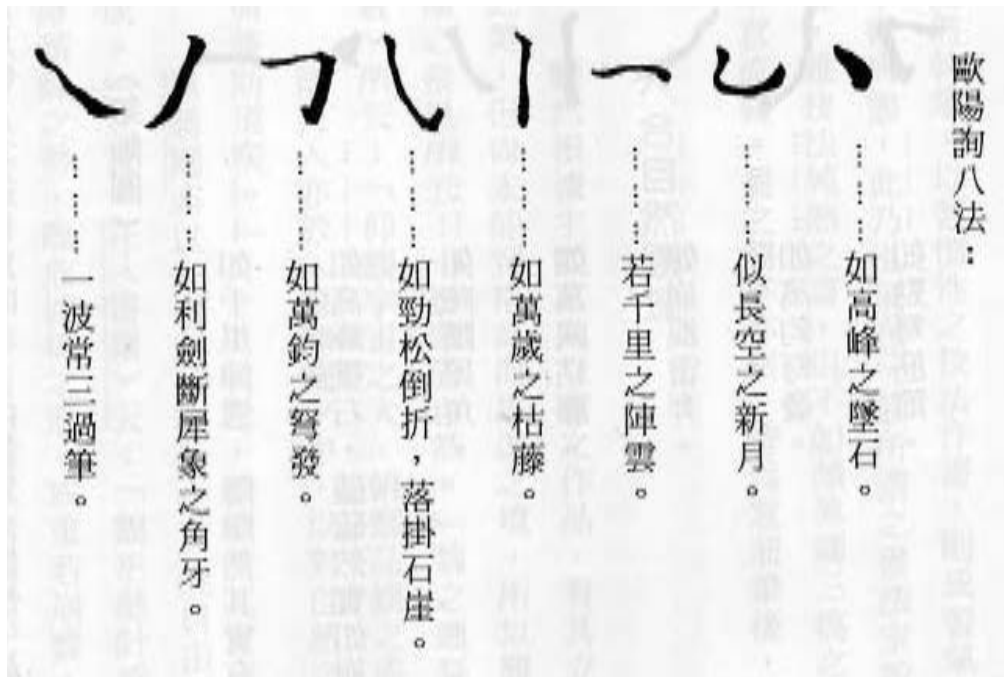 歐陽詢八法：
……如高峰之墜石。
……似長空之新月。
……若千里之陣雲。
……如萬歲之枯藤。
……如勁松倒折，落掛石崖。
……如萬鈞之弩發。
……如利劍斷犀象之角牙。
……一波常三過筆。